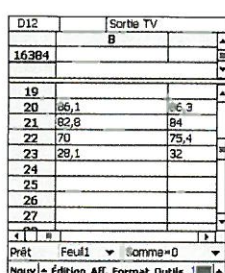 D12 Sortie TV
B
16384
19
20 86,1 86,3
21 82,8 84
22 70 75,4
23 28,1 32
24
25
26
27
Prêt Feuil1 Somme=0
Nouv Édition Aff. Format Outils